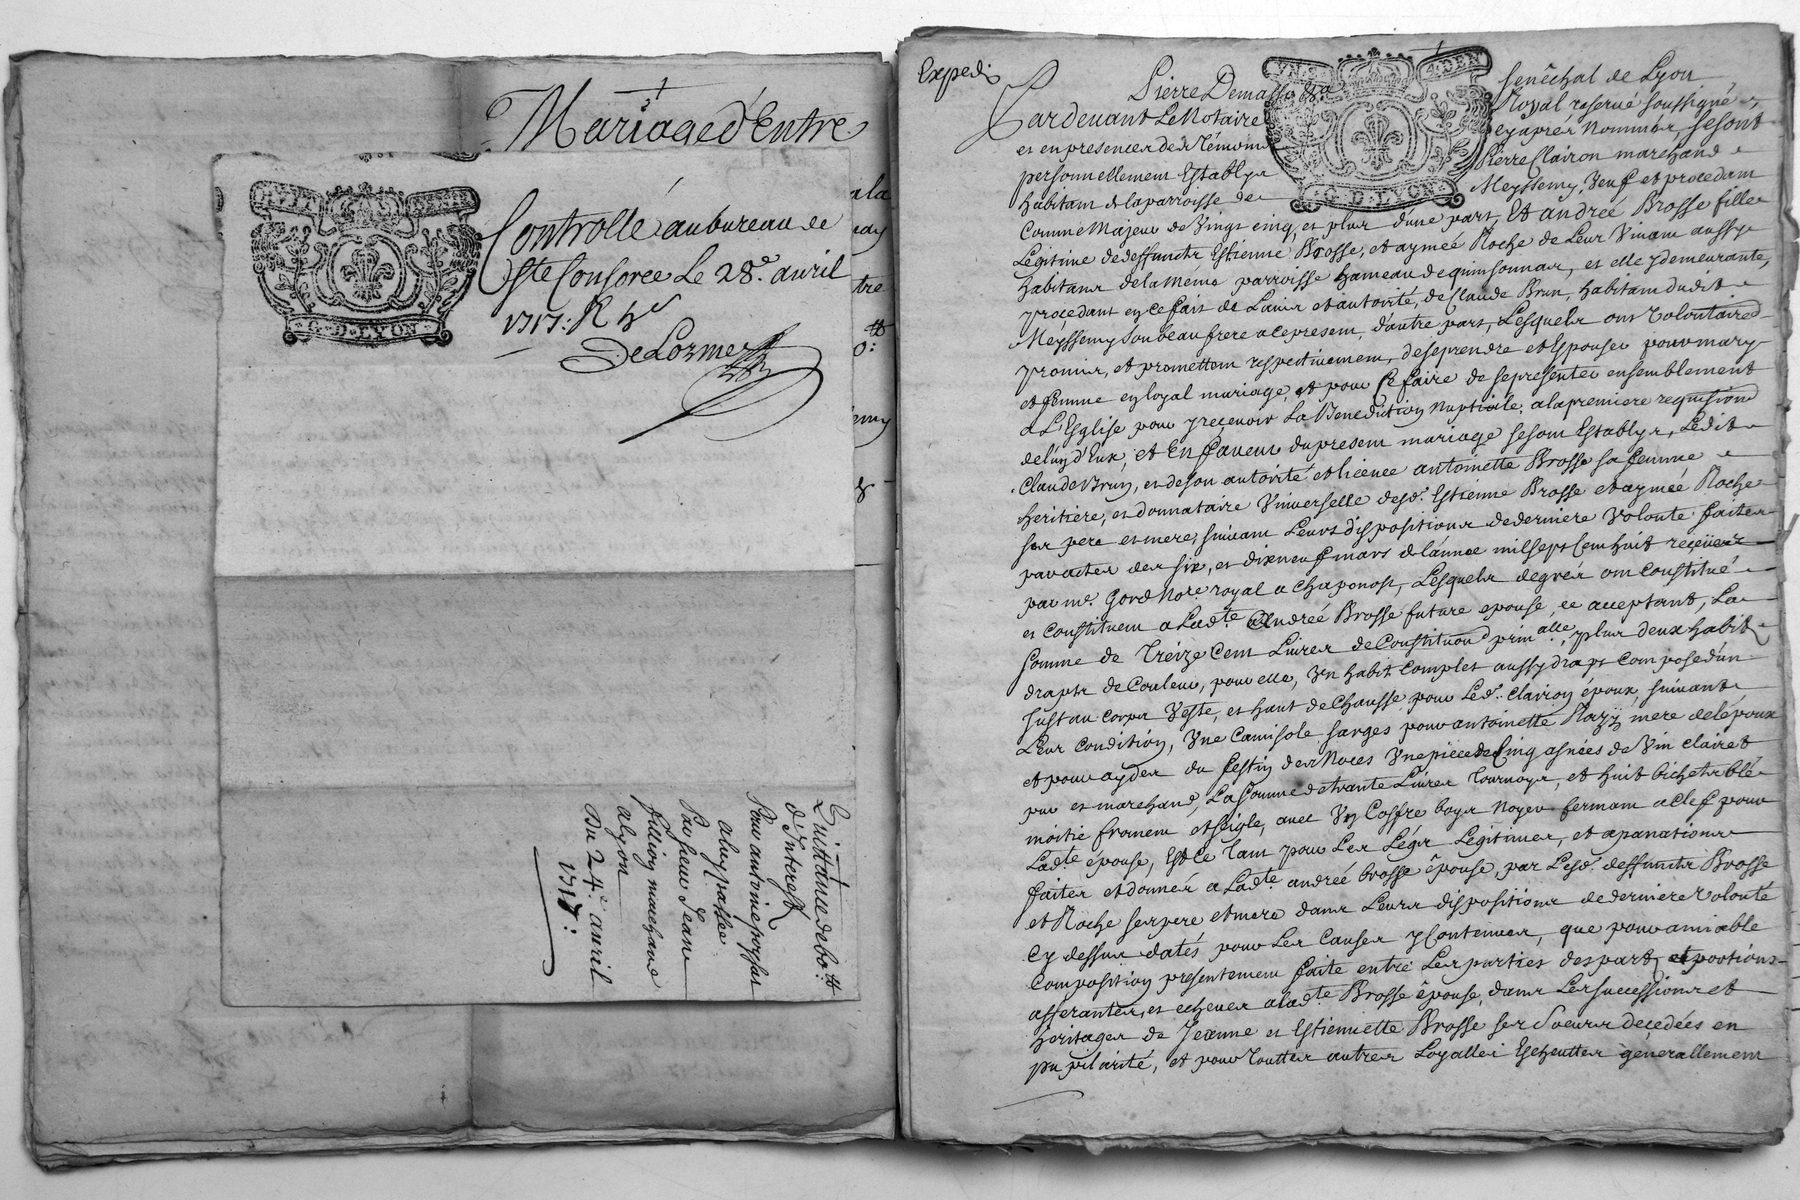 Mariage d'Entre
Controllé au bureau de
Ste Consorce Le 28e. avril
1717: R
DeLorme
G·D·LYON
ala
tre
Quittance de
d'Interest
Pour antoine
a luy passée
Par sieur Jean
fillion marchand
a lyon
Du 24e. avril
1717:
Expedié
Pierre Demasso
senéchal de Lyon
G·D·LYON
Pardevant Le Notaire Royal reservé soussigné
et en presences des Témoins cy aprés Nommés, se sont
personnellement Establys Pierre Clairon marchand
habitant de la parroisse de Meyssemy, Veuf et procedant
Comme Majeur de Vingt cinq, et plus d'une part, Et andreé Brosse fille
Legitime de deffuncts Estienne Brosse, et aymeé Roche de Leur Vivant aussy
habitans de la même parroisse hameau de quinsonnas, et elle y demeurante,
procedant en ce fait de L'avis et autorité, de Claude Brun, habitant dudit
Meyssemy son beau frere a ce present, d'autre part, Lesquels ont Volontaired
promis, et promettent respectivement, de se prendre et Espouser pour mary
et femme en loyal mariage, et pour se faire de se presenter ensemblement
a L'Esglise pour y recevoir La Benediction Nuptiale, a la premiere requisition
de l'un d'Eux, et En faveur du present mariage se sont Establys, Ledit
Claude Brun, et de son autorité et licence antoinette Brosse sa femme
heritiere, et donnataire Universelle desd. Estienne Brosse et aymeé Roche
ses pere et mere, suivant Leurs dispositions de derniere Volonté faites
par actes des six, et dix neuf mars de l'année mil sept Cent huit receües
par me. Gord Nore. royal a Chaponost, Lesquels de grés ont Constitué
et Constituent a Ladte. Andreé Brosse future epouse, ce acceptant, La
somme de Treize Cent Livres de Constituõn prinalle, plus deux habits
drapts de Couleur, pour elle, Un habit Complet aussy drapt Composé d'un
Just au corps Veste, et haut de Chausse pour Led. Clairon époux, suivant
Leur Condition, Une Camisole sarges pour antoinette Razy mere de l'époux
et pour ayder du festin des Noces Une piece de Cinq asnées de Vin clairet
pur et marchand, La somme de trante Livres Tournoys, et huit bichets blé
moitié froment et seigle, avec Un Coffre boys Noyer fermant a Clef pour
Ladte. épouse, Est Ce Tant pour Les Légs Legitimes, et apanations
faites et donnés a Ladte. andreé brosse épouse, par Lesd. deffuncts Brosse
et Roche ses pere et mere dans Leurs dispositions de derniere Volonté
Cy dessus datés pour Les Causes y Contenues, que pour amiable
Composition presentement faite entre Les parties des parts, et portions
afferantes, et echeues a ladte Brosse épouse, dans Les successions et
héritages de Jeanne et Estiennette Brosse ses Soeurs decedées en
pupilarité, et pour Touttes autres Loyalles Escheuttes generallement